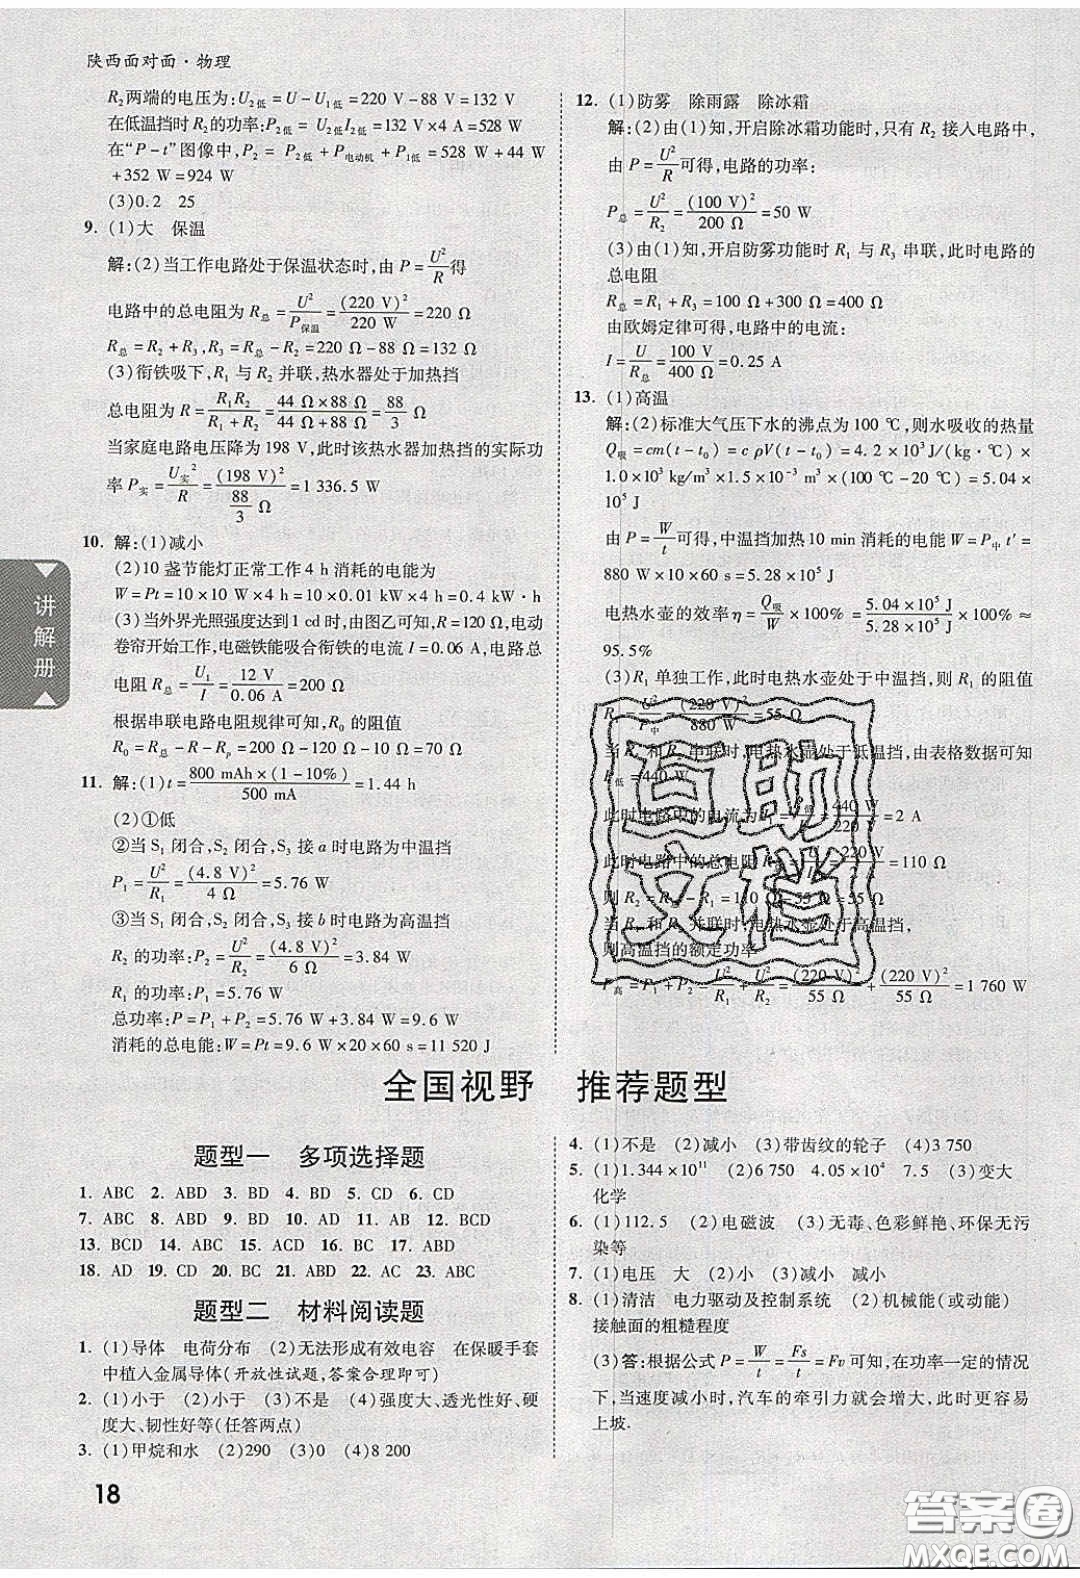 陕西面对面·物理
R₂两端的电压为:U₂低=U-U₁低=220 V-88 V=132 V
在低温挡时R₂的功率:P₂低=U₂低I₂低=132 V×4 A=528 W
在“P-t”图像中,P₂=P₂低+P电动机+P₁低=528 W+44 W
+352 W=924 W
(3)0.2 25
9. (1)大 保温
解:(2)当工作电路处于保温状态时,由P=U²/R得
电路中的总电阻为R总=U²/P保温=(220 V)²/220 W=220 Ω
R总=R₂+R₃,R₃=R总-R₂=220 Ω-88 Ω=132 Ω
(3)衔铁吸下,R₁与R₂并联,热水器处于加热挡
总电阻为R=R₁R₂/(R₁+R₂)=(44 Ω×88 Ω)/(44 Ω+88 Ω)=88/3 Ω
当家庭电路电压降为198 V,此时该热水器加热挡的实际功
率P实=U实²/R=(198 V)²/(88/3 Ω)=1 336.5 W
10. 解:(1)减小
(2)10盏节能灯正常工作4 h消耗的电能为
W=Pt=10×10 W×4 h=10×0.01 kW×4 h=0.4 kW·h
(3)当外界光照强度达到1 cd时,由图乙可知R=120 Ω,电动
卷帘开始工作,电磁铁能吸合衔铁的电流I=0.06 A,电路总
电阻R总=U₁/I=12 V/0.06 A=200 Ω
根据串联电路电阻规律可知,R₀的阻值
R₀=R总-R-Rp=200 Ω-120 Ω-10 Ω=70 Ω
11. 解:(1)t=800 mAh×(1-10%)/500 mA=1.44 h
(2)①低
②当S₁闭合,S₂闭合,S₃接a时电路为中温挡
P₁=U²/R₁=(4.8 V)²/4 Ω=5.76 W
③当S₁闭合,S₂闭合,S₃接b时电路为高温挡
R₂的功率:P₂=U²/R₂=(4.8 V)²/6 Ω=3.84 W
R₁的功率:P₁=5.76 W
总功率:P=P₁+P₂=5.76 W+3.84 W=9.6 W
消耗的总电能:W=Pt=9.6 W×20×60 s=11 520 J
12. (1)防雾 除雨露 除冰霜
解:(2)由(1)知,开启除冰霜功能时,只有R₂接入电路中,
由P=U²/R可得,电路的功率:
P总=U²/R₂=(100 V)²/200 Ω=50 W
(3)由(1)知,开启防雾功能时R₁与R₃串联,此时电路的
总电阻
R总=R₁+R₃=100 Ω+300 Ω=400 Ω
由欧姆定律可得,电路中的电流:
I=U/R总=100 V/400 Ω=0.25 A
13. (1)高温
解:(2)标准大气压下水的沸点为100 ℃,则水吸收的热量
Q吸=cm(t-t₀)=cρV(t-t₀)=4.2×10³ J/(kg·℃)×
1.0×10³ kg/m³×1.5×10⁻³ m³×(100 ℃-20 ℃)=5.04×
10⁵ J
由P=W/t可得,中温挡加热10 min消耗的电能W=P中t′=
880 W×10×60 s=5.28×10⁵ J
电热水壶的效率η=Q吸/W×100%=5.04×10⁵ J/5.28×10⁵ J×100%≈
95.5%
(3)R₁单独工作,此时电热水壶处于中温挡,则R₁的阻值
R₁=U²/P中=(220 V)²/880 W=55 Ω
当R₁和R₂串联时,电热水壶处于低温挡,由表格数据可知
P低=440 W
此时电路中的电流为I=P低/U=440 W/220 V=2 A
此时电路中的总电阻R总=U/I=220 V/2 A=110 Ω
则R₂=R总-R₁=110 Ω-55 Ω=55 Ω
当R₁和R₂并联时,电热水壶处于高温挡,
则高温挡的额定功率
P高=P₁+P₂=U²/R₁+U²/R₂=(220 V)²/55 Ω+(220 V)²/55 Ω=1 760 W
讲解册
互助
文档
全国视野 推荐题型
题型一 多项选择题
1. ABC 2. ABD 3. BD 4. BD 5. CD 6. CD
7. ABC 8. ABD 9. BD 10. AD 11. AB 12. BCD
13. BCD 14. ABC 15. ACD 16. BC 17. ABD
18. AD 19. CD 20. BC 21. ABD 22. AC 23. ABC
题型二 材料阅读题
1. (1)导体 电荷分布 (2)无法形成有效电容 在保暖手套
中植入金属导体(开放性试题,答案合理即可)
2. (1)小于 (2)小于 (3)不是 (4)强度大、透光性好、硬
度大、韧性好等(任答两点)
3. (1)甲烷和水 (2)290 (3)0 (4)8 200
4. (1)不是 (2)减小 (3)带齿纹的轮子 (4)3 750
5. (1)1.344×10¹¹ (2)6 750 4.05×10⁴ 7.5 (3)变大
化学
6. (1)112.5 (2)电磁波 (3)无毒、色彩鲜艳、环保无污
染等
7. (1)电压 大 (2)小 (3)减小 减小
8. (1)清洁 电力驱动及控制系统 (2)机械能(或动能)
接触面的粗糙程度
(3)答:根据公式P=W/t=Fs/t=Fv可知,在功率一定的情况
下,当速度减小时,汽车的牵引力就会增大,此时更容易
上坡.
18
答案圈
MXQE.COM